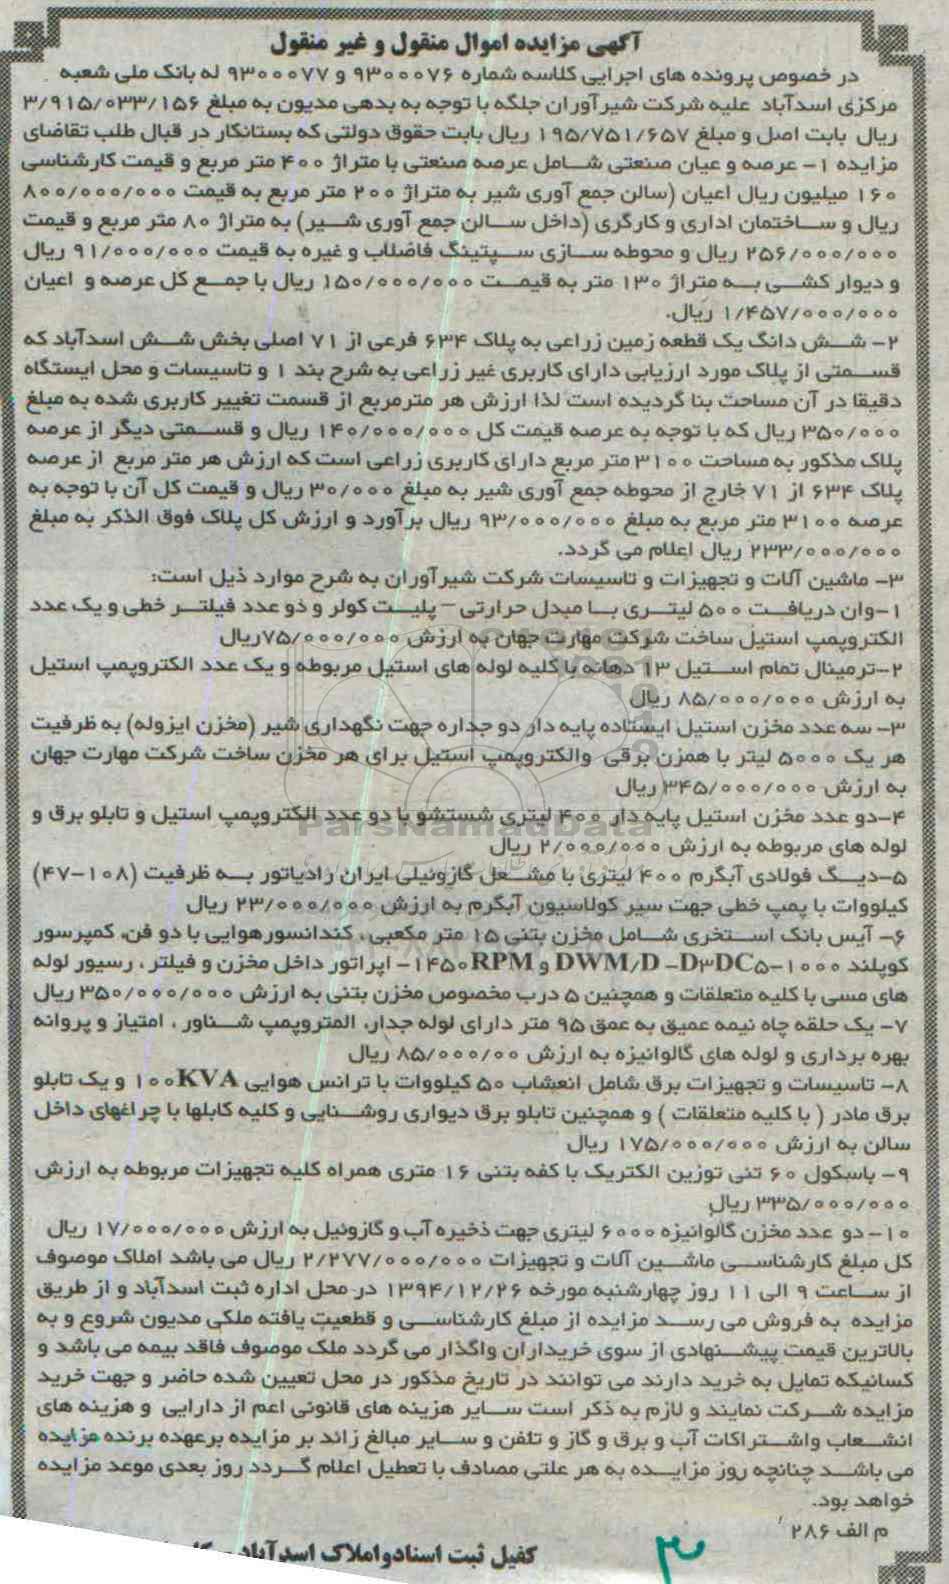 آگهی مزایده اموال منقول و غیر منقول
در خصوص پرونده های اجرایی کلاسه شماره ۹۳۰۰۰۷۶ و ۹۳۰۰۰۷۷ له بانک ملی شعبه
مرکزی اسدآباد علیه شرکت شیرآوران جلگه با توجه به بدهی مدیون به مبلغ ۳/۹۱۵/۰۳۳/۱۵۶
ریال بابت اصل و مبلغ ۱۹۵/۷۵۱/۶۵۷ ریال بابت حقوق دولتی که بستانکار در قبال طلب تقاضای
مزایده ۱- عرصه و عیان صنعتی شامل عرصه صنعتی با متراژ ۴۰۰ متر مربع و قیمت کارشناسی
۱۶۰ میلیون ریال اعیان (سالن جمع آوری شیر به متراژ ۲۰۰ متر مربع به قیمت ۸۰۰/۰۰۰/۰۰۰
ریال و ساختمان اداری و کارگری (داخل سالن جمع آوری شیر) به متراژ ۸۰ متر مربع و قیمت
۲۵۶/۰۰۰/۰۰۰ ریال و محوطه سازی سپتینگ فاضلاب و غیره به قیمت ۹۱/۰۰۰/۰۰۰ ریال
و دیوار کشی به متراژ ۱۳۰ متر به قیمت ۱۵۰/۰۰۰/۰۰۰ ریال با جمع کل عرصه و اعیان
۱/۴۵۷/۰۰۰/۰۰۰ ریال.
۲- شش دانگ یک قطعه زمین زراعی به پلاک ۶۳۴ فرعی از ۷۱ اصلی بخش شش اسدآباد که
قسمتی از پلاک مورد ارزیابی دارای کاربری غیر زراعی به شرح بند ۱ و تاسیسات و محل ایستگاه
دقیقا در آن مساحت بنا گردیده است لذا ارزش هر مترمربع از قسمت تغییر کاربری شده به مبلغ
۳۵۰/۰۰۰ ریال که با توجه به عرصه قیمت کل ۱۴۰/۰۰۰/۰۰۰ ریال و قسمتی دیگر از عرصه
پلاک مذکور به مساحت ۳۱۰۰ متر مربع دارای کاربری زراعی است که ارزش هر متر مربع از عرصه
پلاک ۶۳۴ از ۷۱ خارج از محوطه جمع آوری شیر به مبلغ ۳۰/۰۰۰ ریال و قیمت کل آن با توجه به
عرصه ۳۱۰۰ متر مربع به مبلغ ۹۳/۰۰۰/۰۰۰ ریال برآورد و ارزش کل پلاک فوق الذکر به مبلغ
۲۳۳/۰۰۰/۰۰۰ ریال اعلام می گردد.
۳- ماشین آلات و تجهیزات و تاسیسات شرکت شیرآوران به شرح موارد ذیل است:
۱-وان دریافت ۵۰۰ لیتری با مبدل حرارتی - پلیت کولر و دو عدد فیلتر خطی و یک عدد
الکتروپمپ استیل ساخت شرکت مهارت جهان به ارزش ۷۵/۰۰۰/۰۰۰ریال
۲-ترمینال تمام استیل ۱۳ دهانه با کلیه لوله های استیل مربوطه و یک عدد الکتروپمپ استیل
به ارزش ۸۵/۰۰۰/۰۰۰ ریال
۳- سه عدد مخزن استیل ایستاده پایه دار دو جداره جهت نگهداری شیر (مخزن ایزوله) به ظرفیت
هر یک ۵۰۰۰ لیتر با همزن برقی والکتروپمپ استیل برای هر مخزن ساخت شرکت مهارت جهان
به ارزش ۳۴۵/۰۰۰/۰۰۰ ریال
۴-دو عدد مخزن استیل پایه دار ۴۰۰ لیتری شستشو با دو عدد الکتروپمپ استیل و تابلو برق و
لوله های مربوطه به ارزش ۲/۰۰۰/۰۰۰ ریال
۵-دیگ فولادی آبگرم ۴۰۰ لیتری با مشعل گازوئیلی ایران رادیاتور به ظرفیت (۱۰۸-۴۷)
کیلووات با پمپ خطی جهت سیر کولاسیون آبگرم به ارزش ۲۳/۰۰۰/۰۰۰ ریال
۶- آیس بانک استخری شامل مخزن بتنی ۱۵ متر مکعبی، کندانسورهوایی با دو فن، کمپرسور
کوپلند DWM/D -D۳DC۵-۱۰۰۰ و ۱۴۵۰RPM- اپراتور داخل مخزن و فیلتر، رسیور لوله
های مسی با کلیه متعلقات و همچنین ۵ درب مخصوص مخزن بتنی به ارزش ۳۵۰/۰۰۰/۰۰۰ ریال
۷- یک حلقه چاه نیمه عمیق به عمق ۹۵ متر دارای لوله جدار، المتروپمپ شناور، امتیاز و پروانه
بهره برداری و لوله های گالوانیزه به ارزش ۸۵/۰۰۰/۰۰ ریال
۸- تاسیسات و تجهیزات برق شامل انعشاب ۵۰ کیلووات با ترانس هوایی ۱۰۰KVA و یک تابلو
برق مادر ( با کلیه متعلقات ) و همچنین تابلو برق دیواری روشنایی و کلیه کابلها با چراغهای داخل
سالن به ارزش ۱۷۵/۰۰۰/۰۰۰ ریال
۹- باسکول ۶۰ تنی توزین الکتریک با کفه بتنی ۱۶ متری همراه کلیه تجهیزات مربوطه به ارزش
۳۳۵/۰۰۰/۰۰۰ ریال
۱۰- دو عدد مخزن گالوانیزه ۶۰۰۰ لیتری جهت ذخیره آب و گازوئیل به ارزش ۱۷/۰۰۰/۰۰۰ ریال
کل مبلغ کارشناسی ماشین آلات و تجهیزات ۲/۲۷۷/۰۰۰/۰۰۰ ریال می باشد املاک موصوف
از ساعت ۹ الی ۱۱ روز چهارشنبه مورخه ۱۳۹۴/۱۲/۲۶ در محل اداره ثبت اسدآباد و از طریق
مزایده به فروش می رسد مزایده از مبلغ کارشناسی و قطعیت یافته ملکی مدیون شروع و به
بالاترین قیمت پیشنهادی از سوی خریداران واگذار می گردد ملک موصوف فاقد بیمه می باشد و
کسانیکه تمایل به خرید دارند می توانند در تاریخ مذکور در محل تعیین شده حاضر و جهت خرید
مزایده شرکت نمایند و لازم به ذکر است سایر هزینه های قانونی اعم از دارایی و هزینه های
انشعاب واشتراکات آب و برق و گاز و تلفن و سایر مبالغ زائد بر مزایده برعهده برنده مزایده
می باشد چنانچه روز مزایده به هر علتی مصادف با تعطیل اعلام گردد روز بعدی موعد مزایده
خواهد بود.
م الف ۲۸۶
کفیل ثبت اسنادواملاک اسدآباد
۳
ParsNamadData